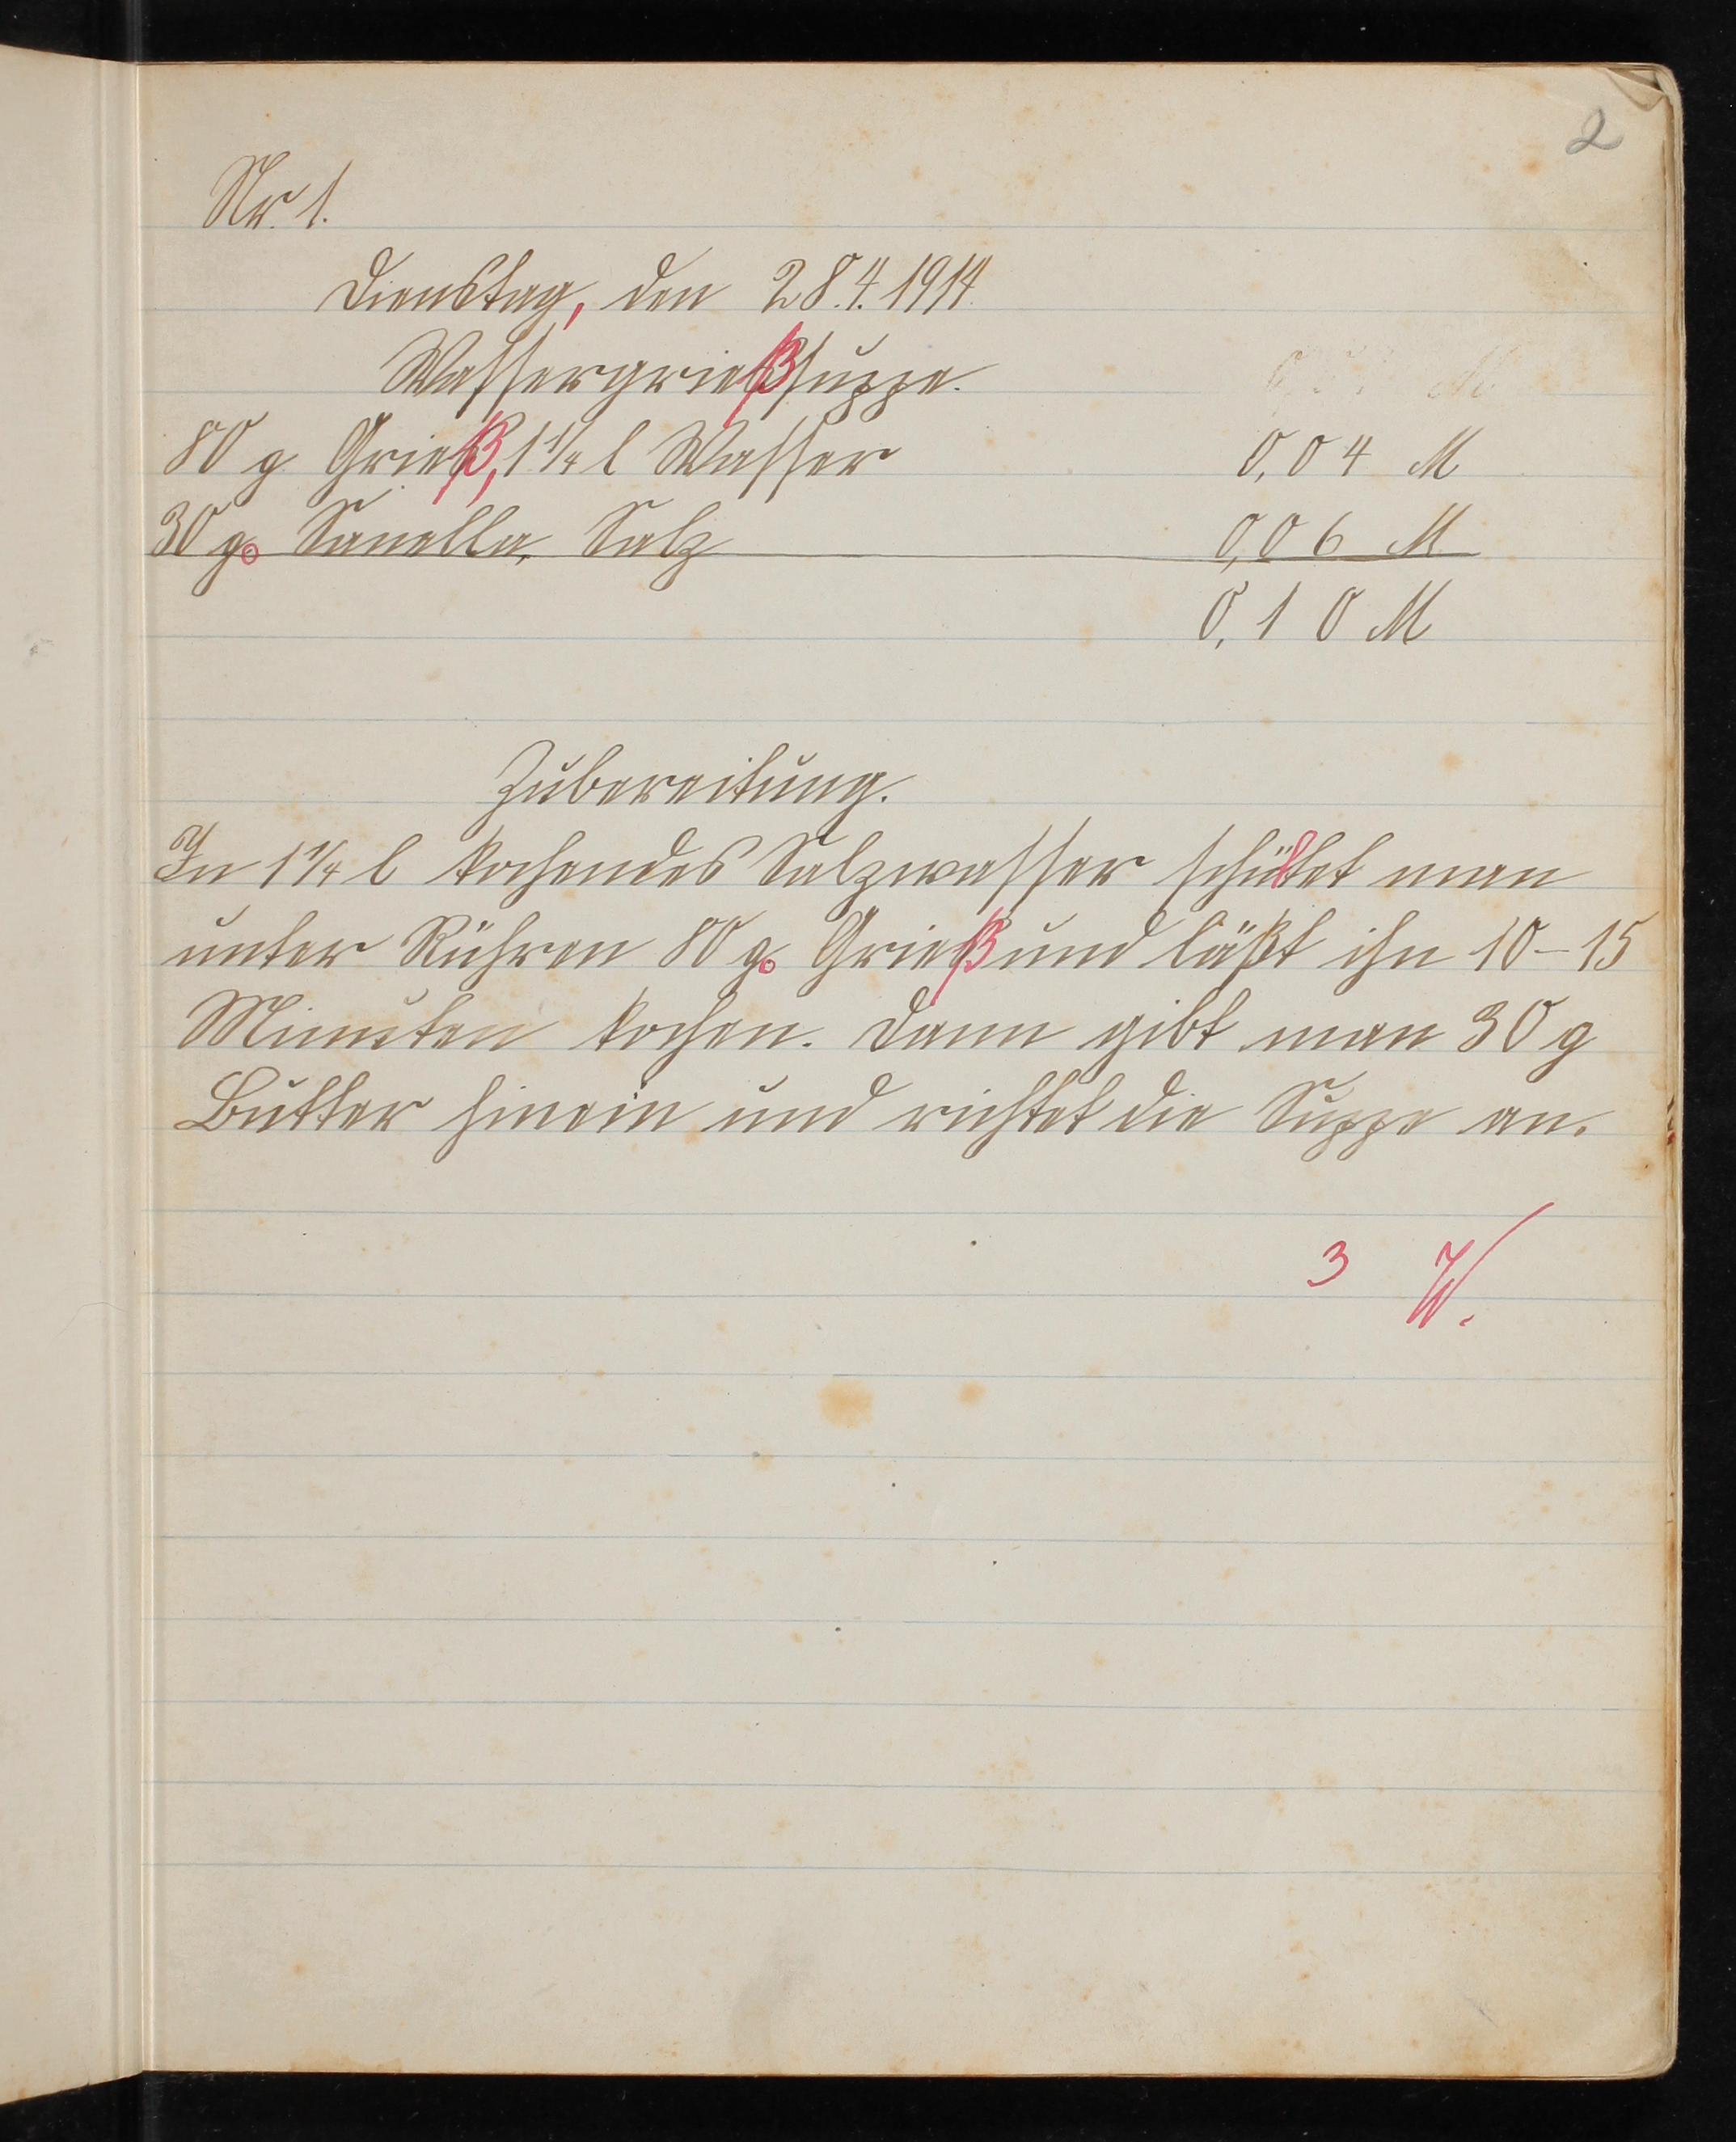 2
Nr. 1.
Dienstag, den 28.4.1914.
Wassergrießsuppe.
80 g Grieß, 1 1/4 l Wasser 0,04 M
30 g. Sanella, Salz 0,06 M
0,10 M
Zubereitung.
In 1 1/4 l kochendes Salzwasser schüttet man
unter Rühren 80 g. Grieß und läßt ihn 10–15
Minuten kochen. Dann gibt man 30 g
Butter hinein und richtet die Suppe an.
3 W.